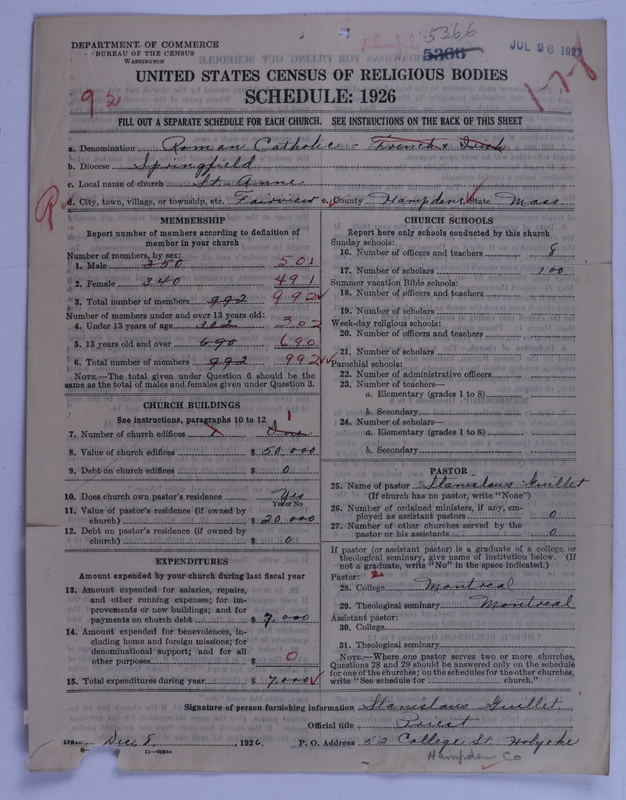 5366
DEPARTMENT OF COMMERCE
BUREAU OF THE CENSUS
WASHINGTON
5366
JUL 26 1927
UNITED STATES CENSUS OF RELIGIOUS BODIES
SCHEDULE: 1926
92
1-7-8
FILL OUT A SEPARATE SCHEDULE FOR EACH CHURCH. SEE INSTRUCTIONS ON THE BACK OF THIS SHEET
a. Denomination Roman Catholic - French & Irish
b. Diocese Springfield
c. Local name of church St. Anne
d. City, town, village, or township, etc. Fairview e. County Hampden State Mass
MEMBERSHIP
Report number of members according to definition of
member in your church
Number of members, by sex:
1. Male 350 501
2. Female 340 491
3. Total number of members 992 992
Number of members under and over 13 years old:
4. Under 13 years of age 302 302
5. 13 years old and over 690 690
6. Total number of members 992 992
NOTE.—The total given under Question 6 should be the
same as the total of males and females given under Question 3.
CHURCH BUILDINGS
See instructions, paragraphs 10 to 12
7. Number of church edifices One 1
8. Value of church edifices $ 50,000
9. Debt on church edifices $ 0
10. Does church own pastor's residence Yes
Yes or No
11. Value of pastor's residence (if owned by
church) $ 20,000
12. Debt on pastor's residence (if owned by
church) $ 0
EXPENDITURES
Amount expended by your church during last fiscal year
13. Amount expended for salaries, repairs,
and other running expenses; for im-
provements or new buildings; and for
payments on church debt $ 7,000
14. Amount expended for benevolences, in-
cluding home and foreign missions; for
denominational support; and for all
other purposes $ 0
15. Total expenditures during year $ 7,000
CHURCH SCHOOLS
Report here only schools conducted by this church
Sunday schools:
16. Number of officers and teachers 8
17. Number of scholars 100
Summer vacation Bible schools:
18. Number of officers and teachers
19. Number of scholars
Week-day religious schools:
20. Number of officers and teachers
21. Number of scholars
Parochial schools:
22. Number of administrative officers
23. Number of teachers—
a. Elementary (grades 1 to 8)
b. Secondary
24. Number of scholars—
a. Elementary (grades 1 to 8)
b. Secondary
PASTOR
25. Name of pastor Stanislaus Guillet
(If church has no pastor, write "None")
26. Number of ordained ministers, if any, em-
ployed as assistant pastors 0
27. Number of other churches served by the
pastor or his assistants 0
If pastor (or assistant pastor) is a graduate of a college or
theological seminary, give name of institution below. (If
not a graduate, write "No" in the space indicated.)
Pastor: 2
28. College Montreal
29. Theological seminary Montreal
Assistant pastor:
30. College
31. Theological seminary
NOTE.—Where one pastor serves two or more churches,
Questions 28 and 29 should be answered only on the schedule
for one of the churches; on the schedules for the other churches,
write "See schedule for church."
Signature of person furnishing information Stanislaus Guillet
Official title Priest
Dec. 8, 1926. P. O. Address 52 College St Holyoke
11-9084
Hampden Co